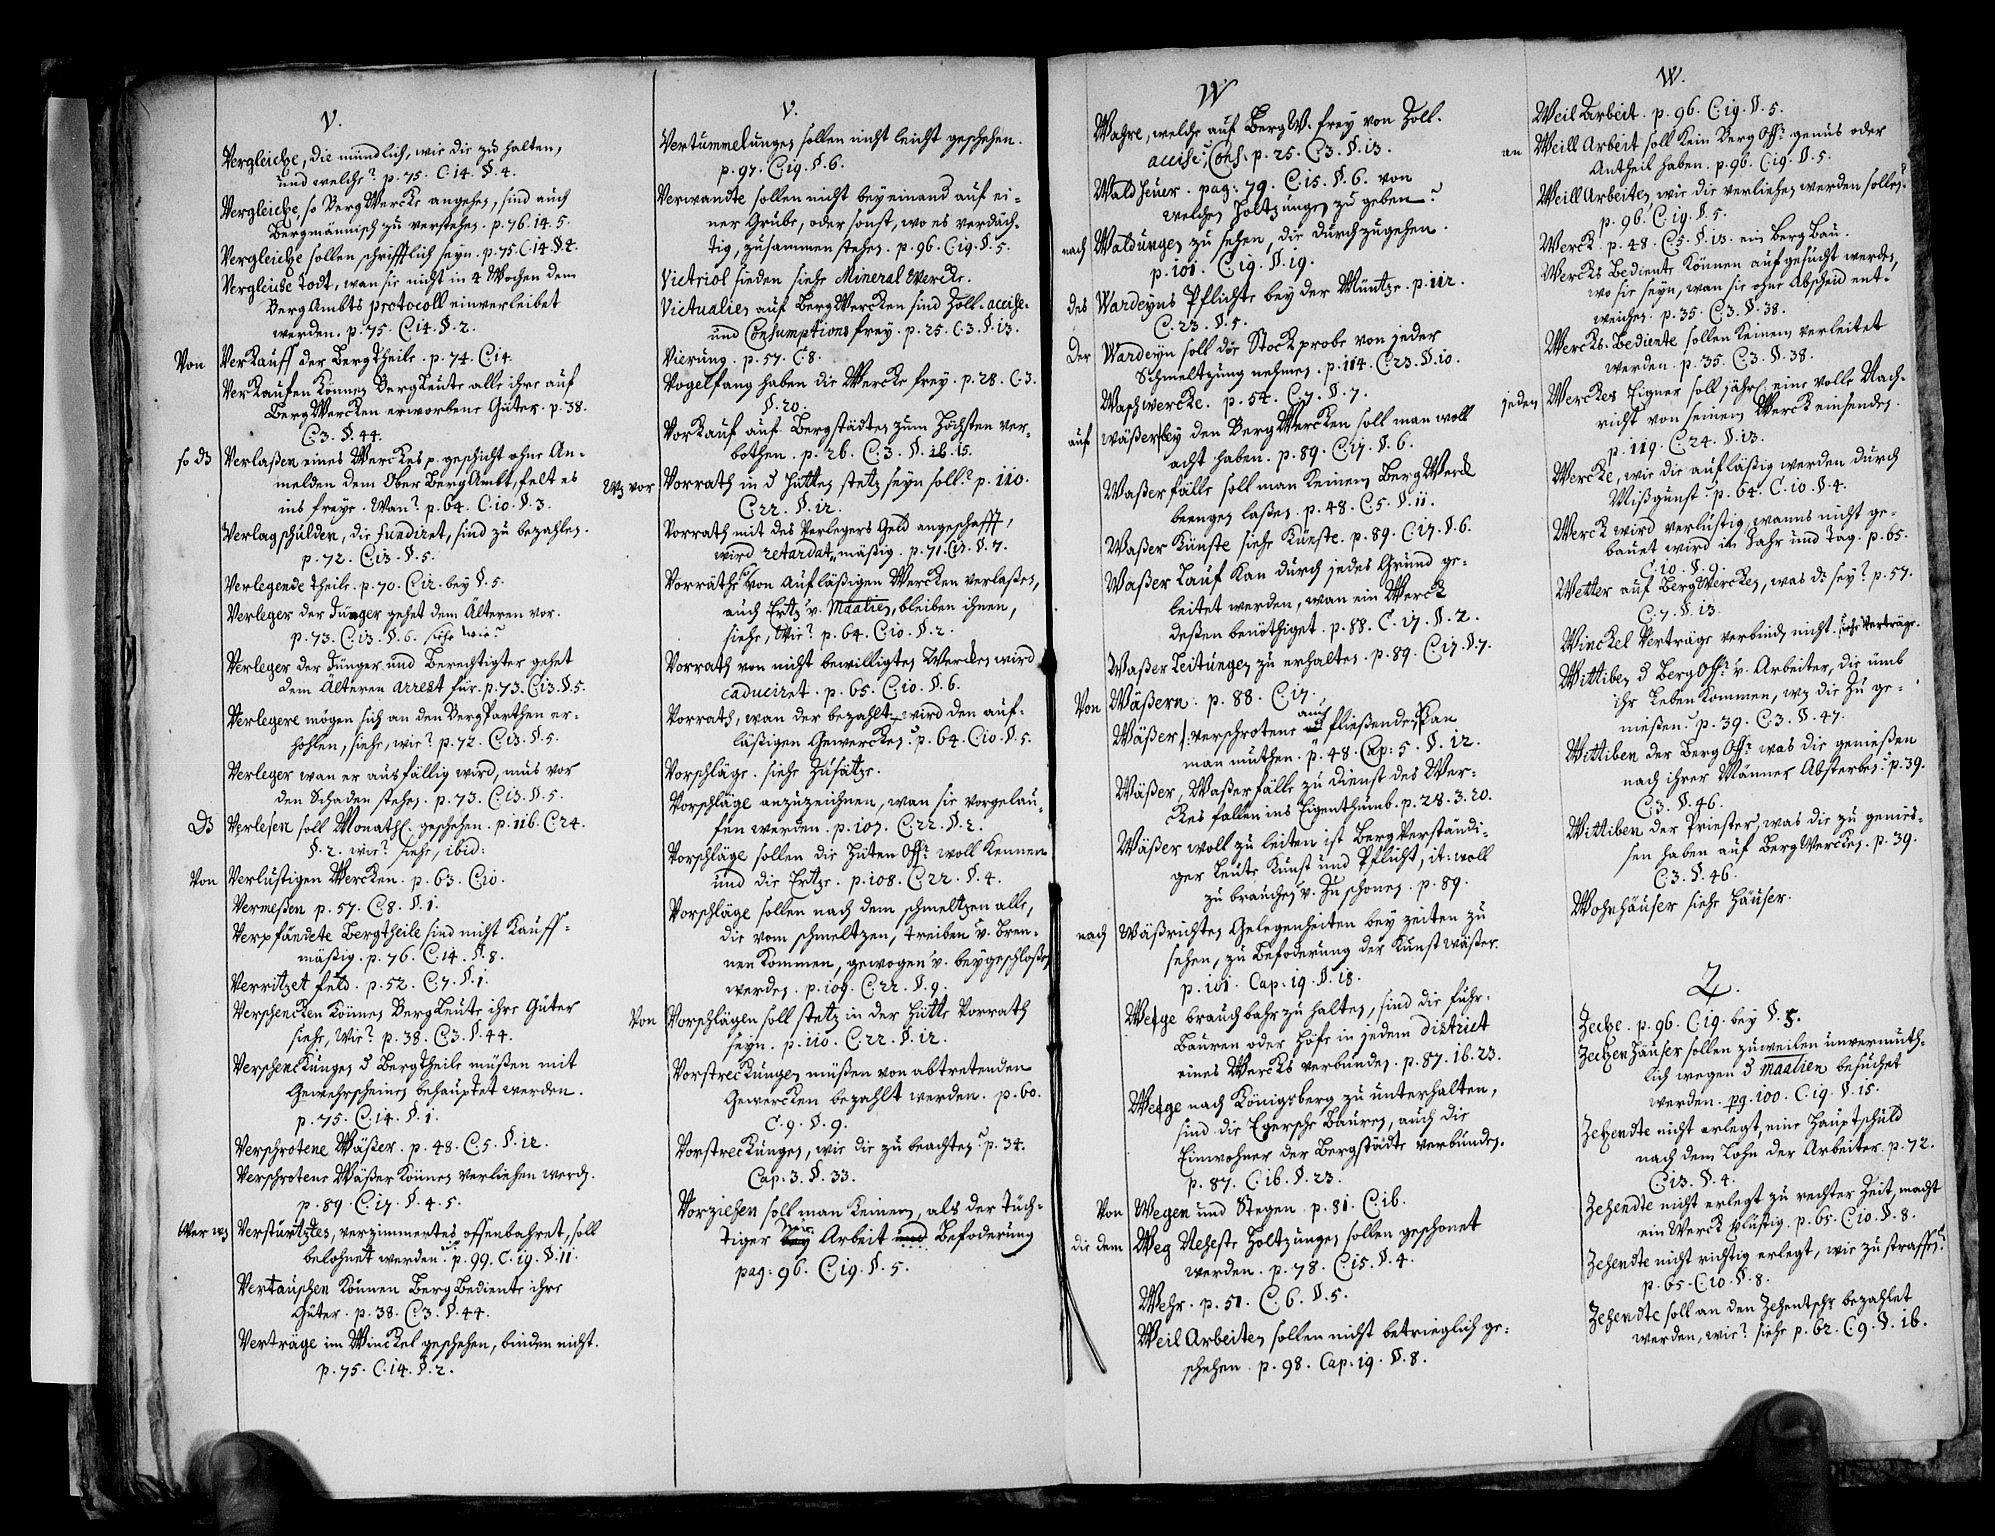 V.
Vergleiche, die mündlich, wie die zu halten,
und welche? p. 75. C. 14. §. 4.
Vergleiche, so BergWercke angehen, sind auch
Bergmännisch zu verstehen. p. 76. 14. 5.
Vergleiche sollen schrifftlich seyn. p. 75. C. 14. §. 4.
Vergleiche todt, wan sie nicht in 4 Wochen dem
BergAmbts protocoll einverleibet
werden. p. 75. C. 14. §. 2.
Von Verkauff der BergTheile. p. 74. C. 14.
Verkaufen können BergLeute alle ihre auf
BergWercken erworbene Güter. p. 38.
C. 3. §. 44.
so ds Verlaßen eines Werckes p. geschicht ohne An-
melden dem Ober BergAmbt, felt es
ins freye. Wan? p. 64. C. 10. §. 3.
Verlagschulden, die fundiret, sind zu bezahlen.
p. 72. C. 13. §. 5.
Verlegende theile. p. 70. C. 12. bey §. 5.
Verleger der Jünger gehet dem Älteren vor.
p. 73. C. 13. §. 6. siehe wie?
Verleger der Jünger und Berechtigter gehet
dem Älteren arrest für. p. 73. C. 13. §. 5.
Verlegere mögen sich an den BergParthen er-
hohlen, siehe, wie? p. 72. C. 13. §. 5.
Verleger wan er ausfällig wird, mus vor
den Schaden stehen. p. 73. C. 13. §. 5.
Ds Verlesen soll Monathl. geschehen. p. 116. C. 24.
§. 2. wie? siehe, ibid:
Von Verlustigen Wercken. p. 63. C. 10.
Vermeßen p. 57. C. 8. §. 1.
Verpfändete Bergtheile sind nicht Kauff-
mäßig. p. 76. C. 14. §. 8.
Verritzet feld. p. 52. C. 7. §. 1.
Verschencken können BergLeute ihre Güter
siehe, Wie? p. 38. C. 3. §. 44.
Verschenckungen d BergTheile müßen mit
Gewehrscheinen behauptet werden.
p. 75. C. 14. §. 1.
Verschrotene Wäßer. p. 48. C. 5. §. 12.
Verschrotene Wäßer können verliehen werden.
p. 89. C. 17. §. 4. 5.
Wer ws Verstürtztes, verzimmertes offenbahret, soll
belohnet werden. p. 99. C. 19. §. 11.
Vertauschen können BergBediente ihre
Güter. p. 38. C. 3. §. 44.
Verträge im Winckel geschehen, binden nicht.
p. 75. C. 14. §. 2.
V.
Vertummelungen sollen nicht leicht geschehen.
p. 97. C. 19. §. 6.
Verwandte sollen nicht beyeinand auf ei-
ner Grube, oder sonst, wo es verdäch-
tig, zusammen stehen. p. 96. C. 19. §. 5.
Victriol sieden siehe Mineral Wercke.
Victualien auf BergWercken sind Zoll. accise.
und Consumptions frey. p. 25. C. 3. §. 13.
Vierung. p. 57. C. 8.
Vogelfang haben die Wercke frey. p. 28. C. 3.
§. 20.
Vorkauf auf Bergstädten zum Höchsten ver-
bothen. p. 26. C. 3. §. 15.
Ws vor Vorrath in d Hütten stets seyn soll? p. 110.
C. 22. §. 12.
Vorrath mit des Verlegers Geld angeschafft,
wird retardat mäßig. p. 71. C. 13. §. 7.
Vorräthe von Aufläßigen Wercken verlaßen,
auch Ertz v. Maalien, bleiben ihnen,
siehe, Wie? p. 64. C. 10. §. 2.
Vorrath von nicht bewilligten Wercken wird
caduciret. p. 65. C. 10. §. 6.
Vorrath, wan der bezahlt wird den auf-
läßigen Gewercken? p. 64. C. 10. §. 5.
Vorschläge. siehe Zusätze.
Vorschläge anzuzeichnen, wan sie vorgelau-
fen werden. p. 107. C. 22. §. 2.
Vorschläge sollen die Hüten Off: woll kennen
und die Ertze. p. 108. C. 22. §. 4.
Vorschläge sollen nach dem schmeltzen alle,
die vom schmeltzen, treiben v. Bren-
nen kommen, gewogen v. beygeschloßen
werden. p. 109. C. 22. §. 9.
Von Vorschlägen soll stetz in der Hütte Vorrath
seyn. p. 110. C. 22. §. 12.
Vorstreckungen müßen von abtretenden
Gewercken bezahlt werden. p. 60.
C. 9. §. 9.
Vorstreckungen, wie die zu beachten? p. 34.
Cap. 3. §. 33.
Vorziehen soll man keinen, als der tüch-
tiger bey Arbeit und Befoderung
pag: 96. C. 19. §. 5.
W
Wahre, welche auf BergW. frey von Zoll.
accise. Cons. p. 25. C. 3. §. 13.
Waldheuer. pag: 79. C. 15. §. 6. von
welchen Holtzungen zu geben?
nach Waldungen zu sehen, die durchzugehen.
p. 101. C. 19. §. 19.
des Wardeyns Pflichte bey der Müntze. p. 112.
C. 23. §. 5.
Der Wardeyn soll die Stockprobe von jeder
Schmeltzung nehmen. p. 114. C. 23. §. 10.
Waschwercke. p. 54. C. 7. §. 7.
auf wäßer bey den BergWercken soll man woll
acht haben. p. 89. C. 17. §. 6.
Waßerfälle soll man keinem BergWerck
beengen laßen. p. 48. C. 5. §. 11.
Waßer Künste siehe Künste. p. 89. C. 17. §. 6.
Waßer Lauf kan durch jedes Grund ge-
leitet werden, wan ein Werck
deßen benöthiget. p. 88. C. 17. §. 2.
Waßer Leitungen zu erhalten. p. 89. C. 17. §. 7.
Von Wäßern. p. 88. C. 17.
Wäßer /: verschrotene auch fließende kan
man muthen. p. 48. Cap: 5. §. 12.
Wäßer, Waßerfälle zu dienst des Wer-
ckes fallen ins Eigenthumb. p. 28. 3. 20.
Wäßer woll zu leiten ist BergVerständi-
ger Leute Kunst und Pflicht, it: woll
zu brauchen v. zu schonen. p. 89.
nach Wäßrichten Gelegenheiten bey zeiten zu
sehen, zu Befoderung der Kunst wäßer.
p. 101. Cap: 19. §. 18.
Wege brauchbahr zu halten, sind die fuhr-
Bauren oder Höfe in jedem district
eines Wercks verbunden. p. 87. 16. 23.
Wege nach Königsberg zu unterhalten,
sind die Egersche Bauren, auch die
Einwohner der Bergstädte verbunden.
p. 87. C. 16. §. 23.
Von Wegen und Stegen. p. 81. C. 16.
die dem Weg Neheste Holtzungen sollen geschonet
werden. p. 78. C. 15. §. 4.
Wehr. p. 51. C. 6. §. 5.
Weil Arbeiten sollen nicht betrieglich ge-
schehen. p. 98. Cap. 19. §. 8.
W.
Weil Arbeit. p. 96. C. 19. §. 5.
an Weill Arbeit soll kein Berg Off: genus oder
Antheil haben. p. 96. C. 19. §. 5.
Weill Arbeiten, wie die verliehen werden sollen?
p. 96. C. 19. §. 5.
Werck. p. 48. C. 5. §. 13. ein BergBau.
Wercks Bediente können aufgesucht werden,
wo sie seyn, wan sie ohne Abscheid ent-
weichen. p. 35. C. 3. §. 38.
Wercks-Bediente sollen keinem verleitet
werden. p. 35. C. 3. §. 38.
jeden Werckes Eigner soll jährl. eine volle Nach-
richt von seinem Werck einsenden.
p. 119. C. 24. §. 13.
Wercke, wie die aufläßig werden durch
Mißgunst? p. 64. C. 10. §. 4.
Werck wird verlustig, wanns nicht ge-
bauet wird in Jahr und Tag. p. 65.
C. 10. §. 9.
Wetter auf BergWercken, was ds sey? p. 57.
C. 7. §. 13.
Winckel Verträge verbinden nicht. siehe Verträge.
Wittiben d BergOff: v. Arbeiter, die umb
ihr Leben kommen, ws die zu ge-
nießen? p. 39. C. 3. §. 47.
Wittiben der Berg Off: was die genießen
nach ihrer Männer Absterben? p. 39.
C. 3. §. 46.
Wittiben der Priester, was die zu genies-
sen haben auf BergWercken. p. 39.
C. 3. §. 46.
Wohnhäuser siehe Häuser.
Z.
Zeche. p. 96. C. 19. bey §. 5.
Zechenhäuser sollen zuweilen unvermuth-
lich wegen d maalien besuchet
werden. pg. 100. C. 19. §. 15.
Zehendte nicht erlegt, eine Hauptschuld
nach dem Lohn der Arbeiter. p. 72.
C. 13. §. 4.
Zehendte nicht erlegt zu rechter Zeit, macht
ein Werck verlustig. p. 65. C. 10. §. 8.
Zehendte nicht richtig erlegt, wie zu straffen?
p. 65. C. 10. §. 8.
Zehendte soll an den Zehentschr bezahlet
werden, wie? siehe p. 62. C. 9. §. 16.